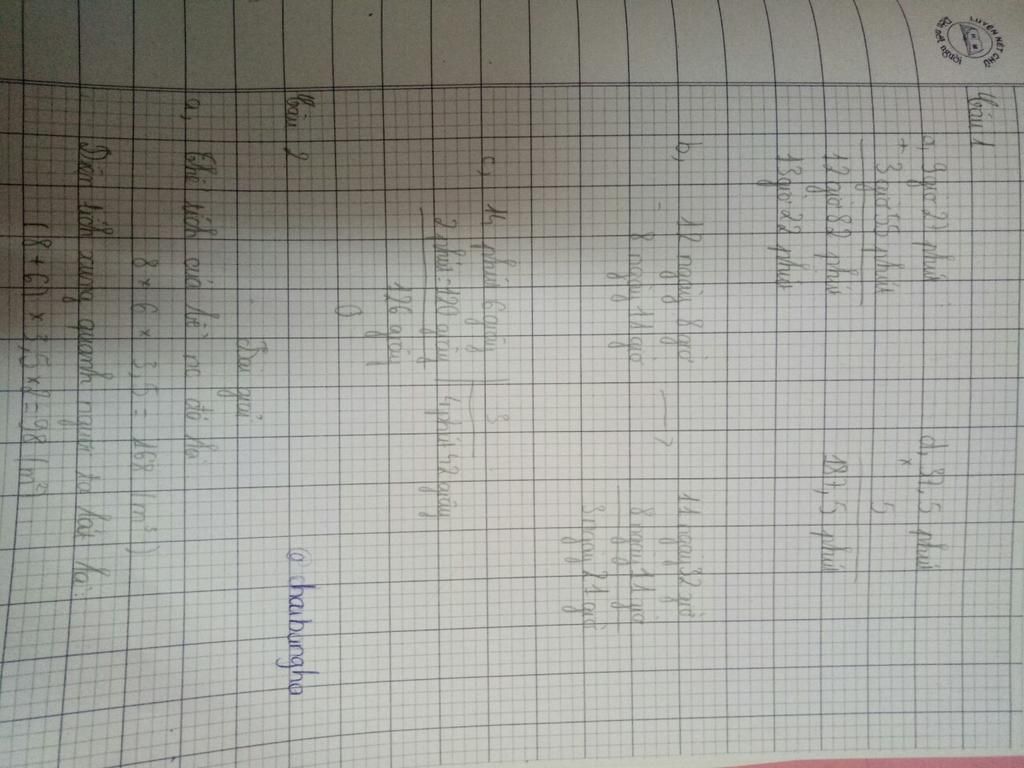 LUYỆN NÉT CHỮ
Câu 1
a, 9 giờ 27 phút
+ 3 giờ 55 phút
12 giờ 82 phút
13 giờ 22 phút
d, 37,5 phút
× 5
187,5 phút
b, 12 ngày 8 giờ
- 8 ngày 11 giờ
→
11 ngày 32 giờ
8 ngày 11 giờ
3 ngày 21 giờ
c, 14 phút 6 giây | 3
2 phút = 120 giây | 4 phút 42 giây
126 giây
0
Câu 2
@ chauhungho
Bài giải
a, Thể tích của bể nước đó là
8 × 6 × 3,5 = 168 (m³)
Diện tích xung quanh người ta lát là:
(8 + 6) × 3,5 × 2 = 98 (m²)